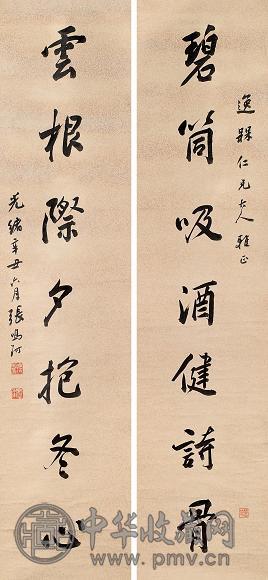 逸槑仁兄大人雅正
碧筒吸酒健詩骨
雲根際夕抱冬心
光緒辛丑六月張鳴珂
中华收藏网
www.pmvc.cn